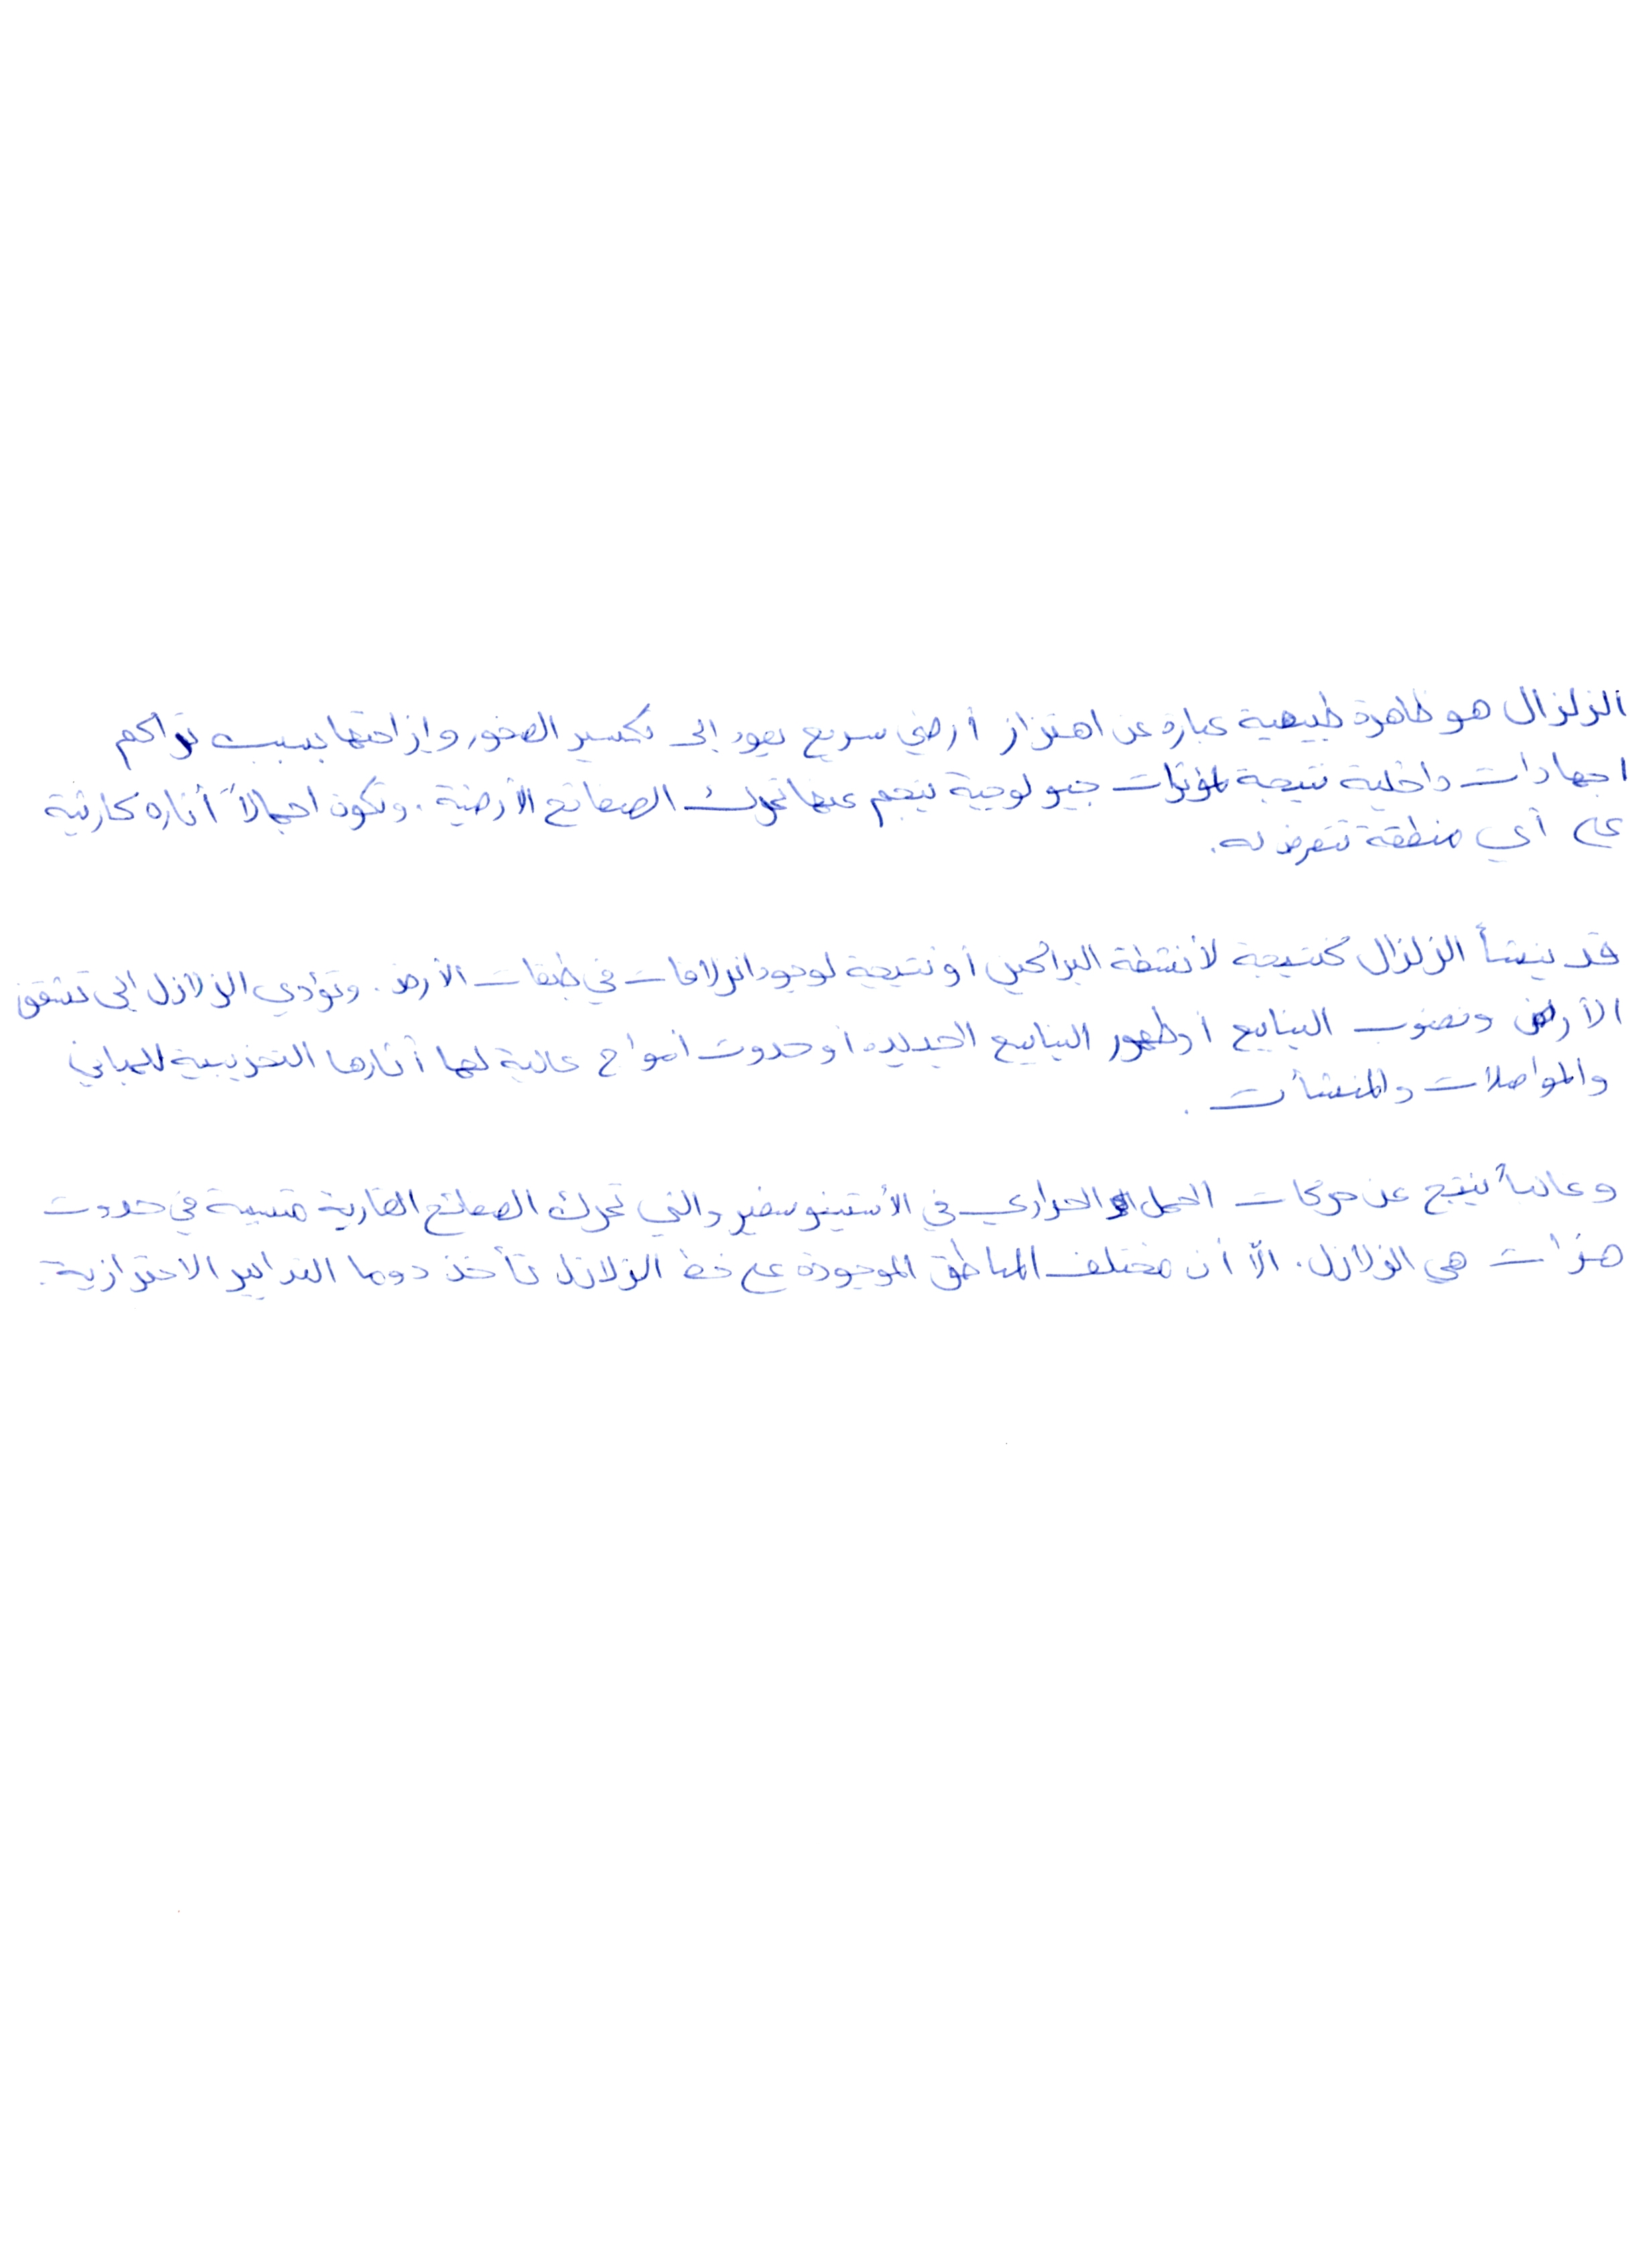 الزلزال هو ظاهرة طبيعية عبارة عن اهتزاز أرضي سريع يعود إلى تكسير الصخور وإزاحتها بسبب تراكم
اجهادات داخلية نتيجة لمؤثرات جيولوجية ينجم عنها تحرك الصفائح الأرضية. وتكون اجمالاً أثاره كارثية
على أي منطقة تتعرض له.
قد ينشأ الزلزال كنتيجة لأنشطة البراكين أو نتيجة لوجود انزلاقات في طبقات الأرض. وتؤدي الزلازل إلى تشقق
الأرض ونضوب الينابيع أو ظهور الينابيع الجديدة أو حدوث أمواج عالية لها أثارها التخريبية للمباني
والمواصلات والمنشأت.
وغالباً ينتج عن حركات الحمل الحراري في الأستينوسفير والتي تحرك الصفائح القارية متسببة في حدوث
هزات هي الزلازل. الاّ أن مختلف المناطق الموجودة على خط الزلازل تأخذ دوما التدابير الاحترازية.